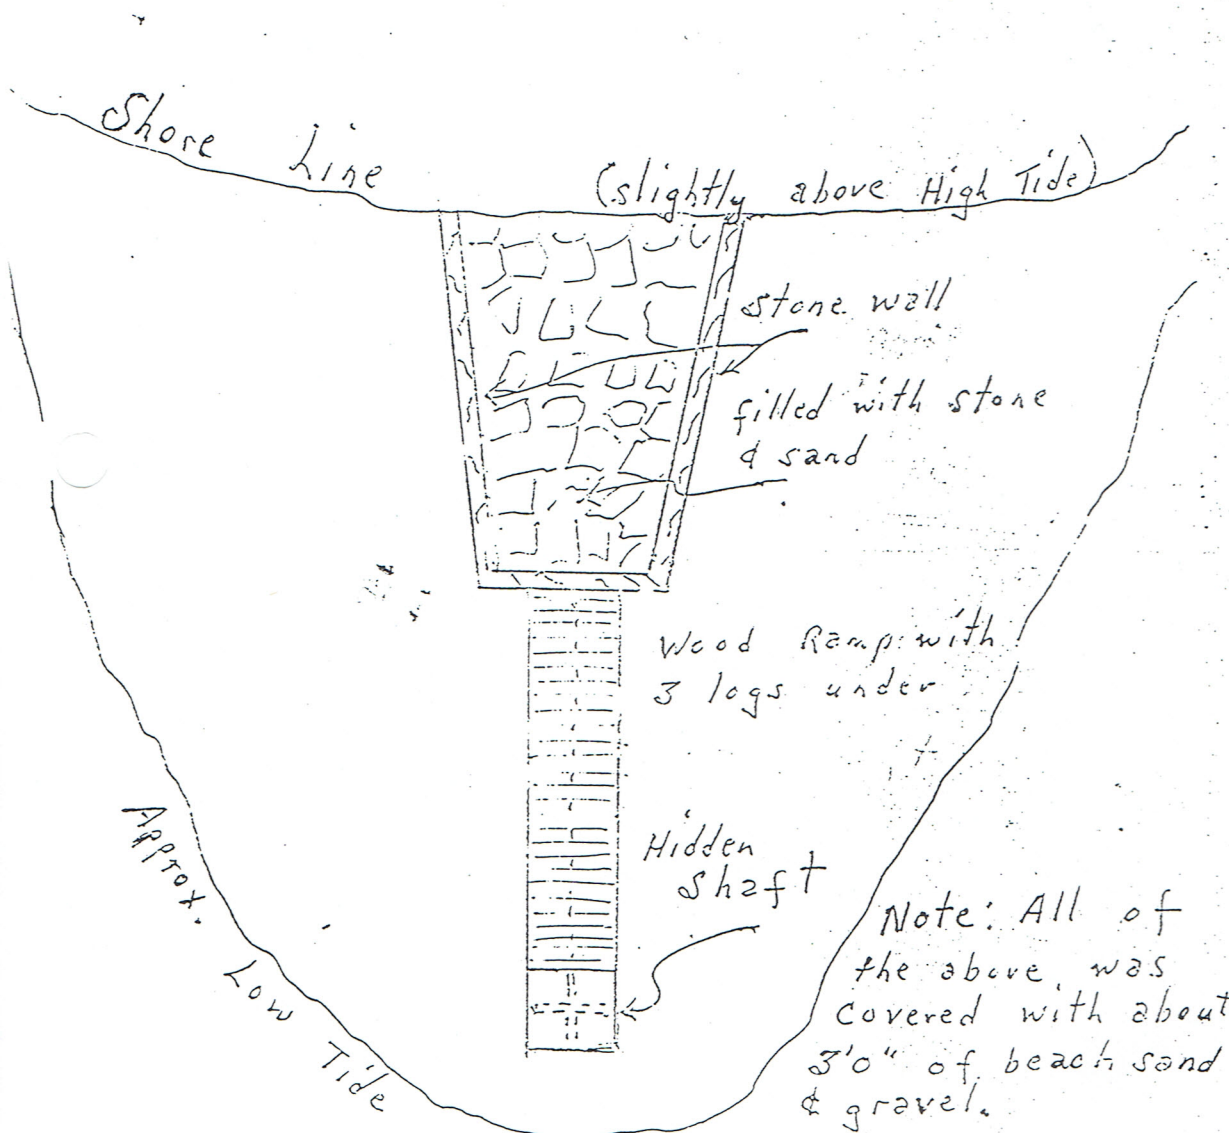 Shore Line (slightly above High Tide)
stone wall
filled with stone
& sand
Wood Ramp with
3 logs under
Hidden
Shaft
Approx. Low Tide
Note: All of
the above was
covered with about
3'0" of beach sand
& gravel.